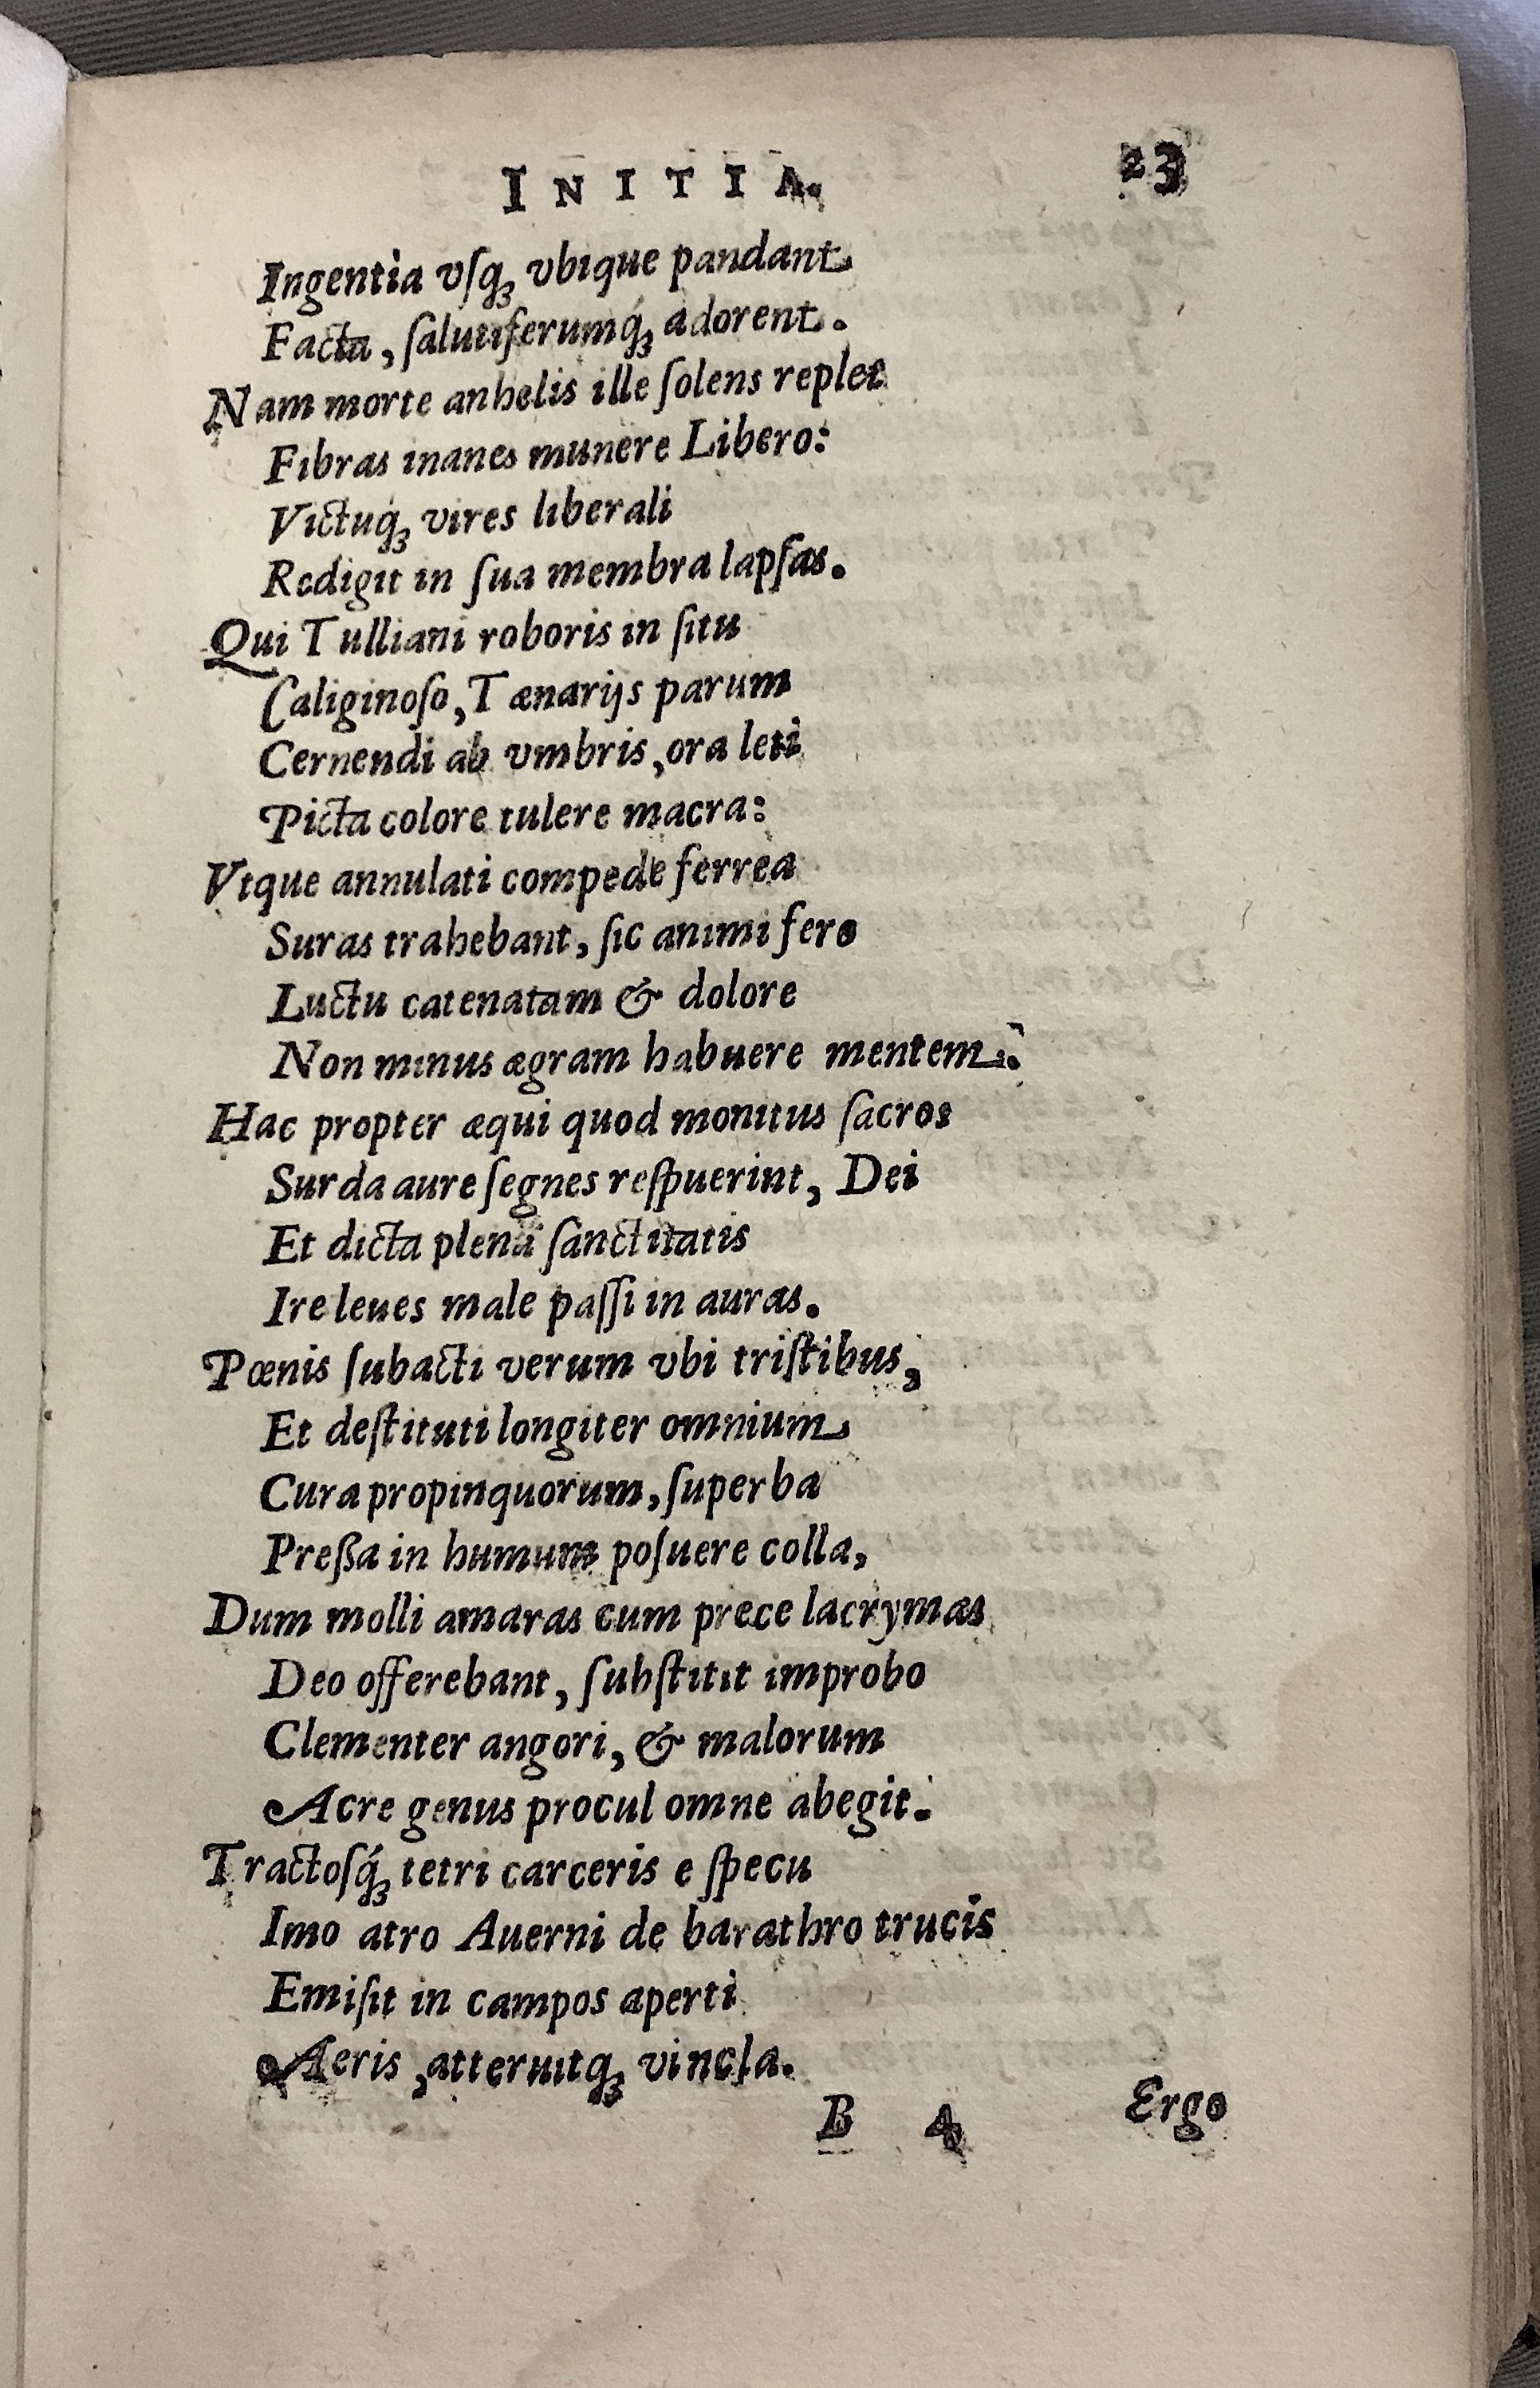 INITIA. 23
Ingentia vſq́ꝫ vbique pandant
Facta, ſalutiferumq́ꝫ adorent.
Nam morte anhelis ille ſolens replet
Fibras inanes munere Libero:
Victuq́ꝫ vires liberali
Redigit in ſua membra lapſas.
Qui Tulliani roboris in ſitu
Caliginoſo, Tænarijs parum
Cernendi ab vmbris, ora leti
Picta colore tulere macra:
Vtque annulati compede ferrea
Suras trahebant, ſic animi fero
Luctu catenatam & dolore
Non minus ægram habuere mentem.
Hac propter æqui quod monitus ſacros
Surda aure ſegnes reſpuerint, Dei
Et dicta plena ſanctitatis
Ire leues male paſſi in auras.
Pœnis ſubacti verum vbi triſtibus,
Et deſtituti longiter omnium
Cura propinquorum, ſuperba
Preßa in humum poſuere colla,
Dum molli amaras cum prece lacrymas
Deo offerebant, ſubſtitit improbo
Clementer angori, & malorum
Acre genus procul omne abegit.
Tractoſq́ꝫ tetri carceris e ſpecu
Imo atro Auerni de barathro trucis
Emiſit in campos aperti
Aeris, atteruitqꝫ vincla.
B 4 Ergo